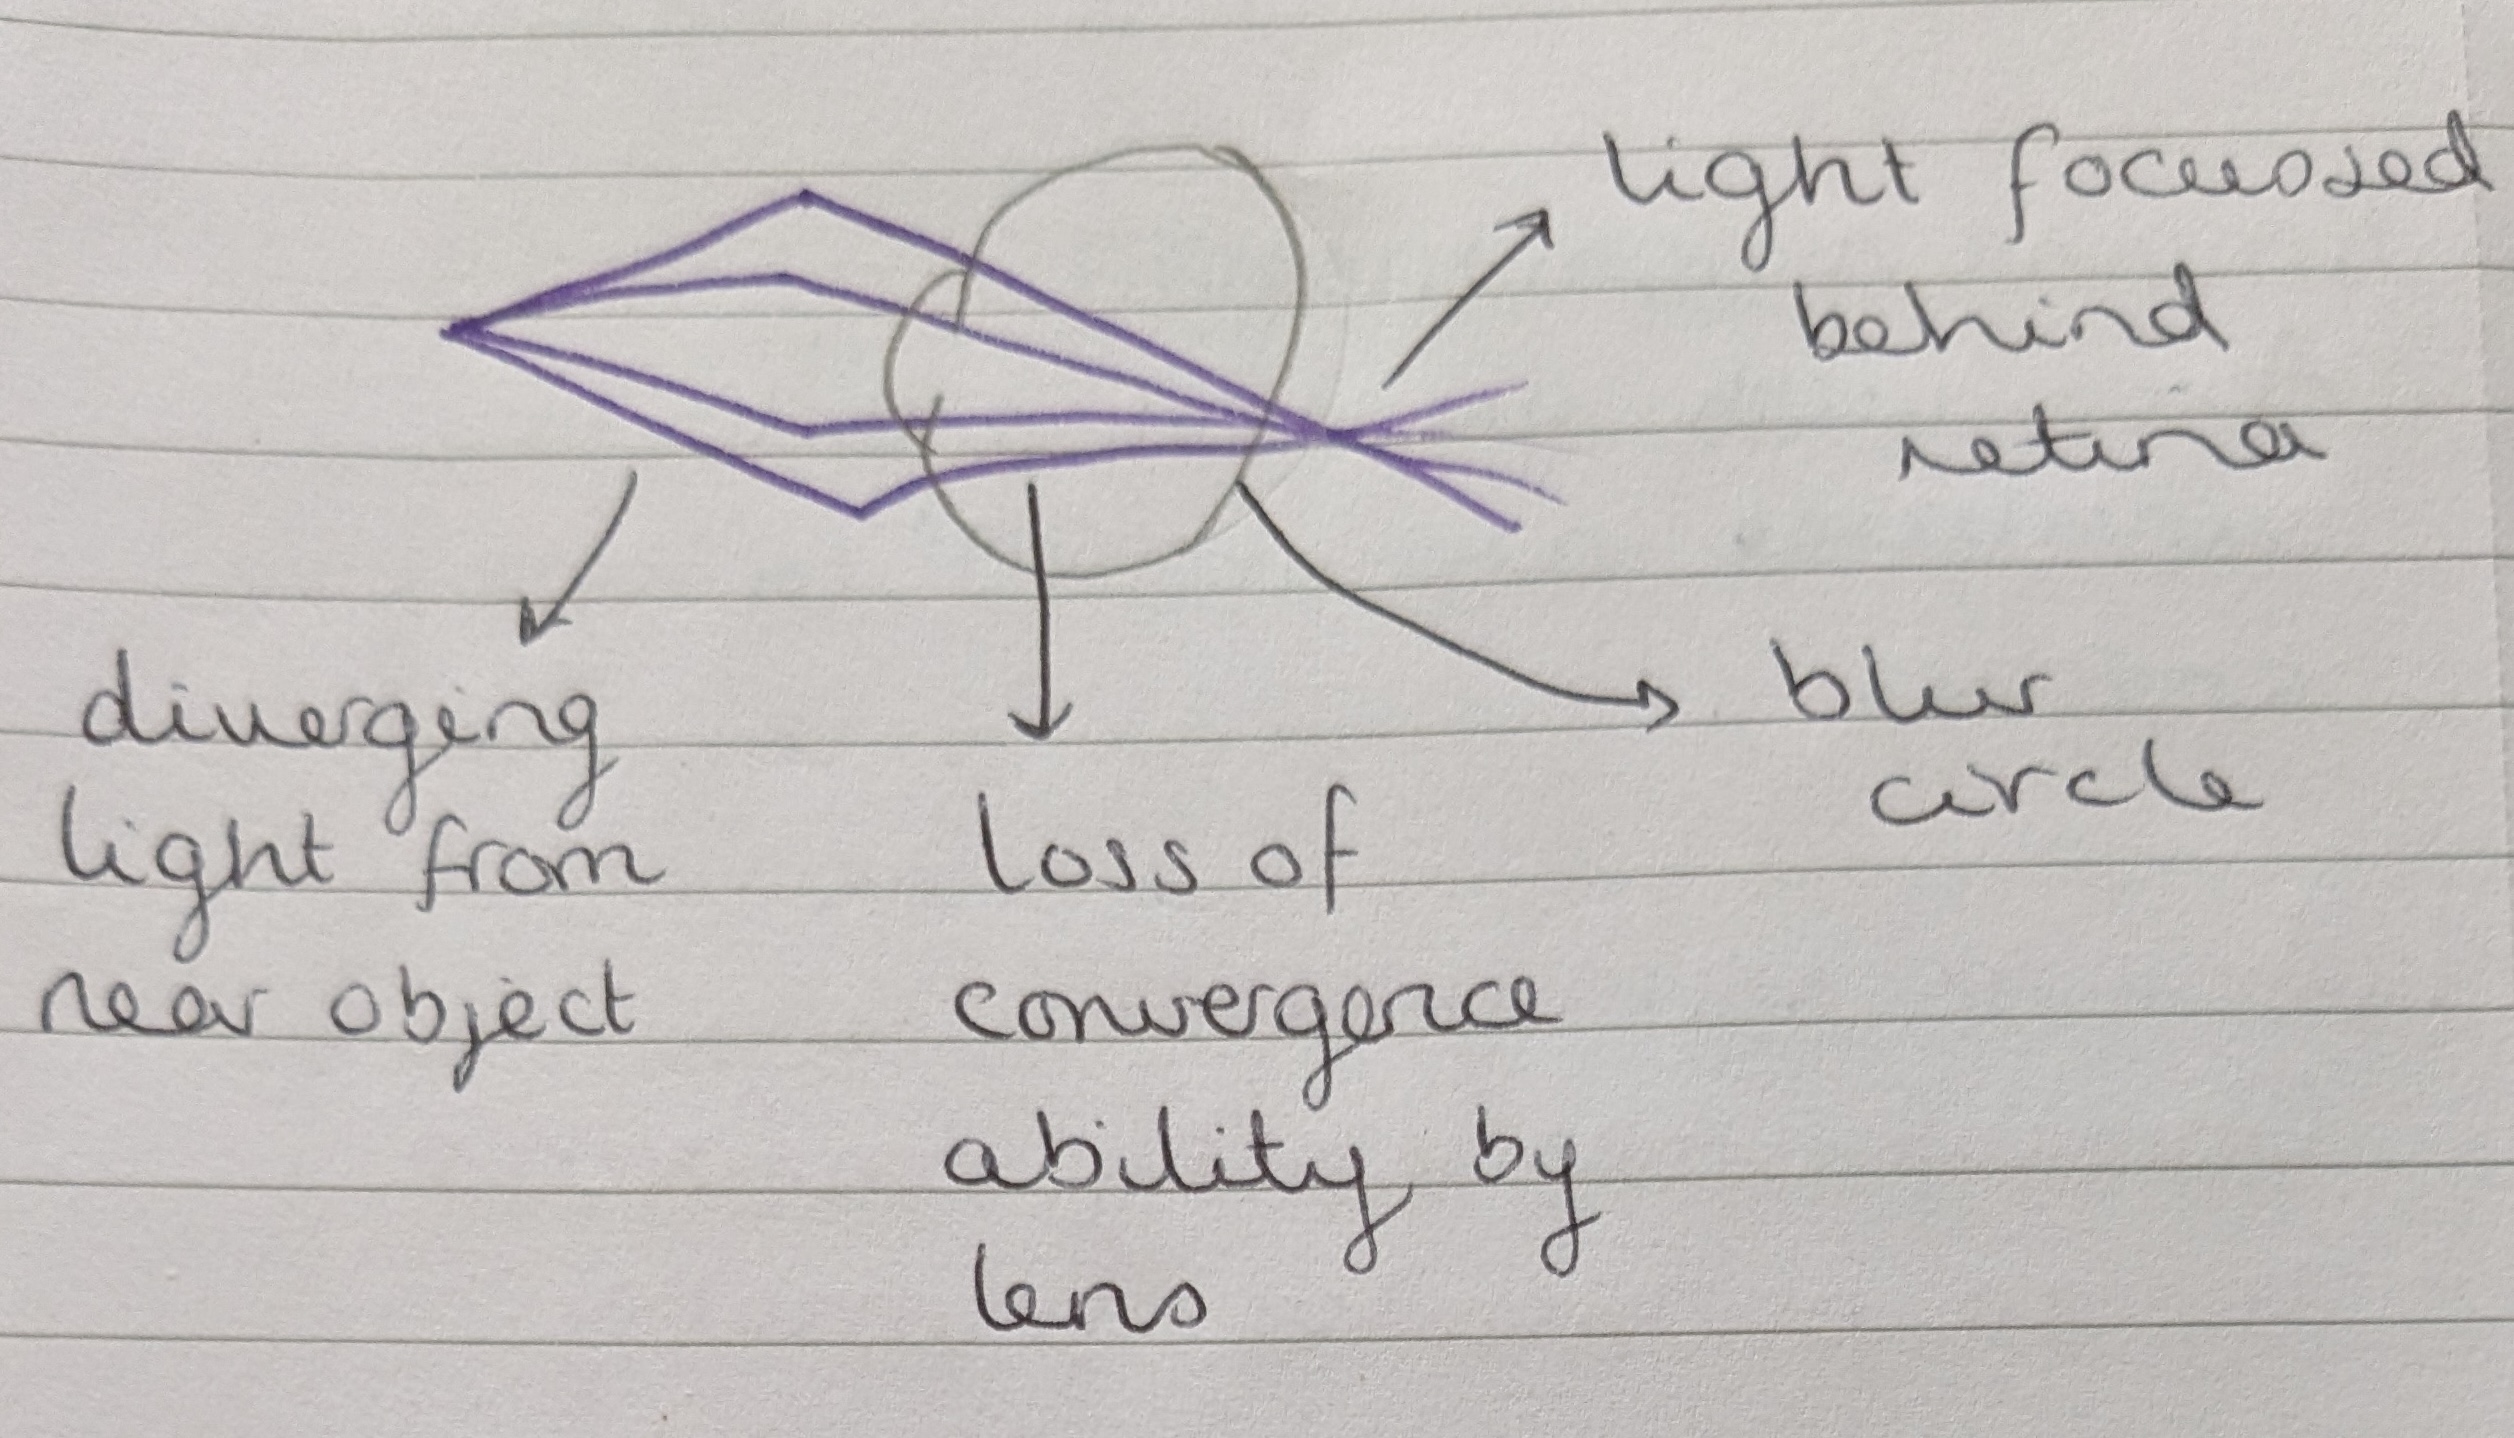 light focussed
behind
retina
diverging
light from
near object
loss of
convergence
ability by
lens
blur
circle